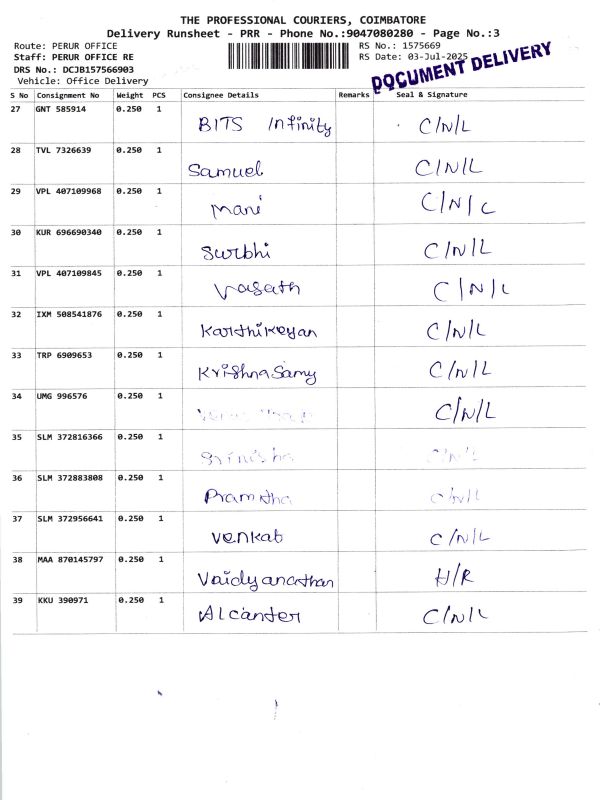 THE PROFESSIONAL COURIERS, COIMBATORE
Delivery Runsheet - PRR - Phone No.:9047080280 - Page No.:3
Route: PERUR OFFICE RS No.: 1575669
Staff: PERUR OFFICE RE RS Date: 03-Jul-2025
DRS No.: DCJB157566903
Vehicle: Office Delivery
DOCUMENT DELIVERY
S No Consignment No Weight PCS Consignee Details Remarks Seal & Signature
27 GNT 585914 0.250 1 BITS Infinity C/N/L
28 TVL 7326639 0.250 1 Samuel C/N/L
29 VPL 407109968 0.250 1 Mani C/N/L
30 KUR 696690340 0.250 1 Surbhi C/N/L
31 VPL 407109845 0.250 1 Vasath C/N/L
32 IXM 508541876 0.250 1 Karthikeyan C/N/L
33 TRP 6909653 0.250 1 Krishna Samy C/N/L
34 UMG 996576 0.250 1 C/N/L
35 SLM 372816366 0.250 1 Srinisha C/N/L
36 SLM 372883808 0.250 1 Pramitha C/N/L
37 SLM 372956641 0.250 1 Venkat C/N/L
38 MAA 870145797 0.250 1 Vaidyanathan H/R
39 KKU 390971 0.250 1 Alcanter C/N/L